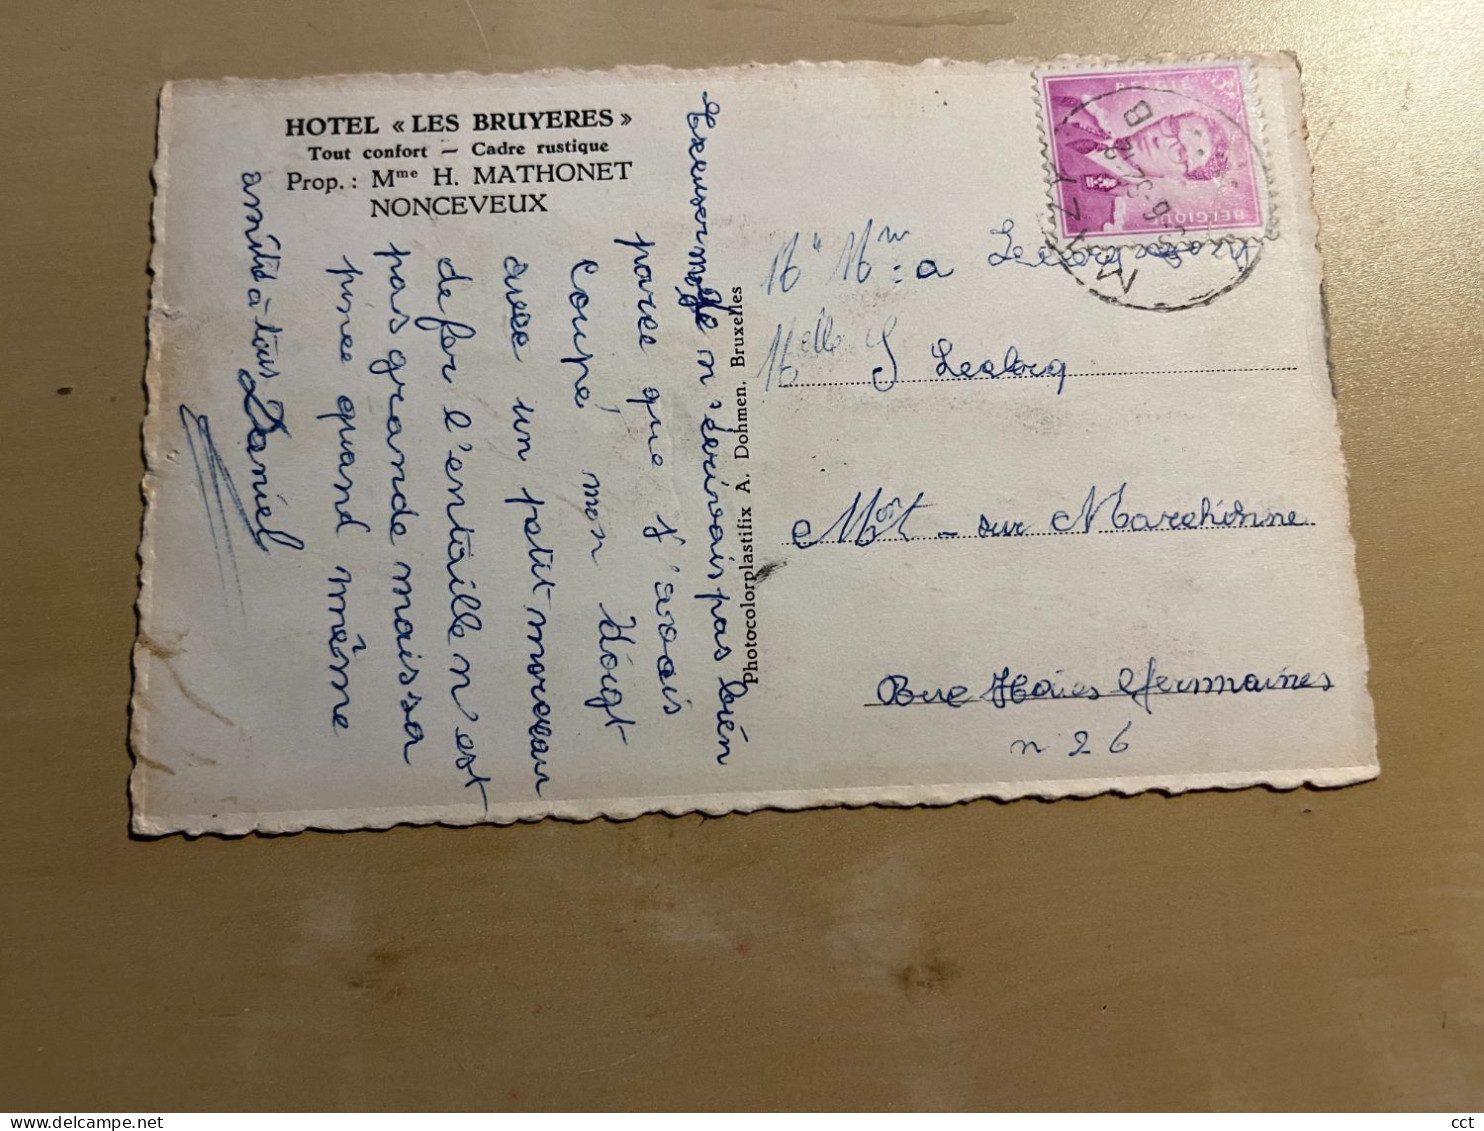 HOTEL « LES BRUYERES »
Tout confort — Cadre rustique
Prop. : Mme H. MATHONET
NONCEVEUX
Excuser moi je n'écrivais pas bién
parce que j'avais
coupé mon dóigt
avec un petit morceau
de fer l'entaille n'est
pas grande mais sa
pince quand même
amitié à tous
Daniél
Photocolorplastifix A. Dohmen, Bruxelles
BELGIE 3F
BELGIQUE
Mr Mme a Leclercq
Melle S Leclercq
Mont - sur Marchienne
Rue Haies Germaines
n 26
cct